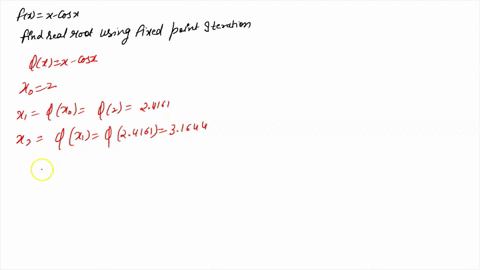 f(x) = x-Cosx
find real root using fixed point Iteration
φ(x) = x - Cosx
x₀ = 2
x₁ = φ(x₀) = φ(2) = 2.4161
x₂ = φ(x₁) = φ(2.4161) = 3.1644